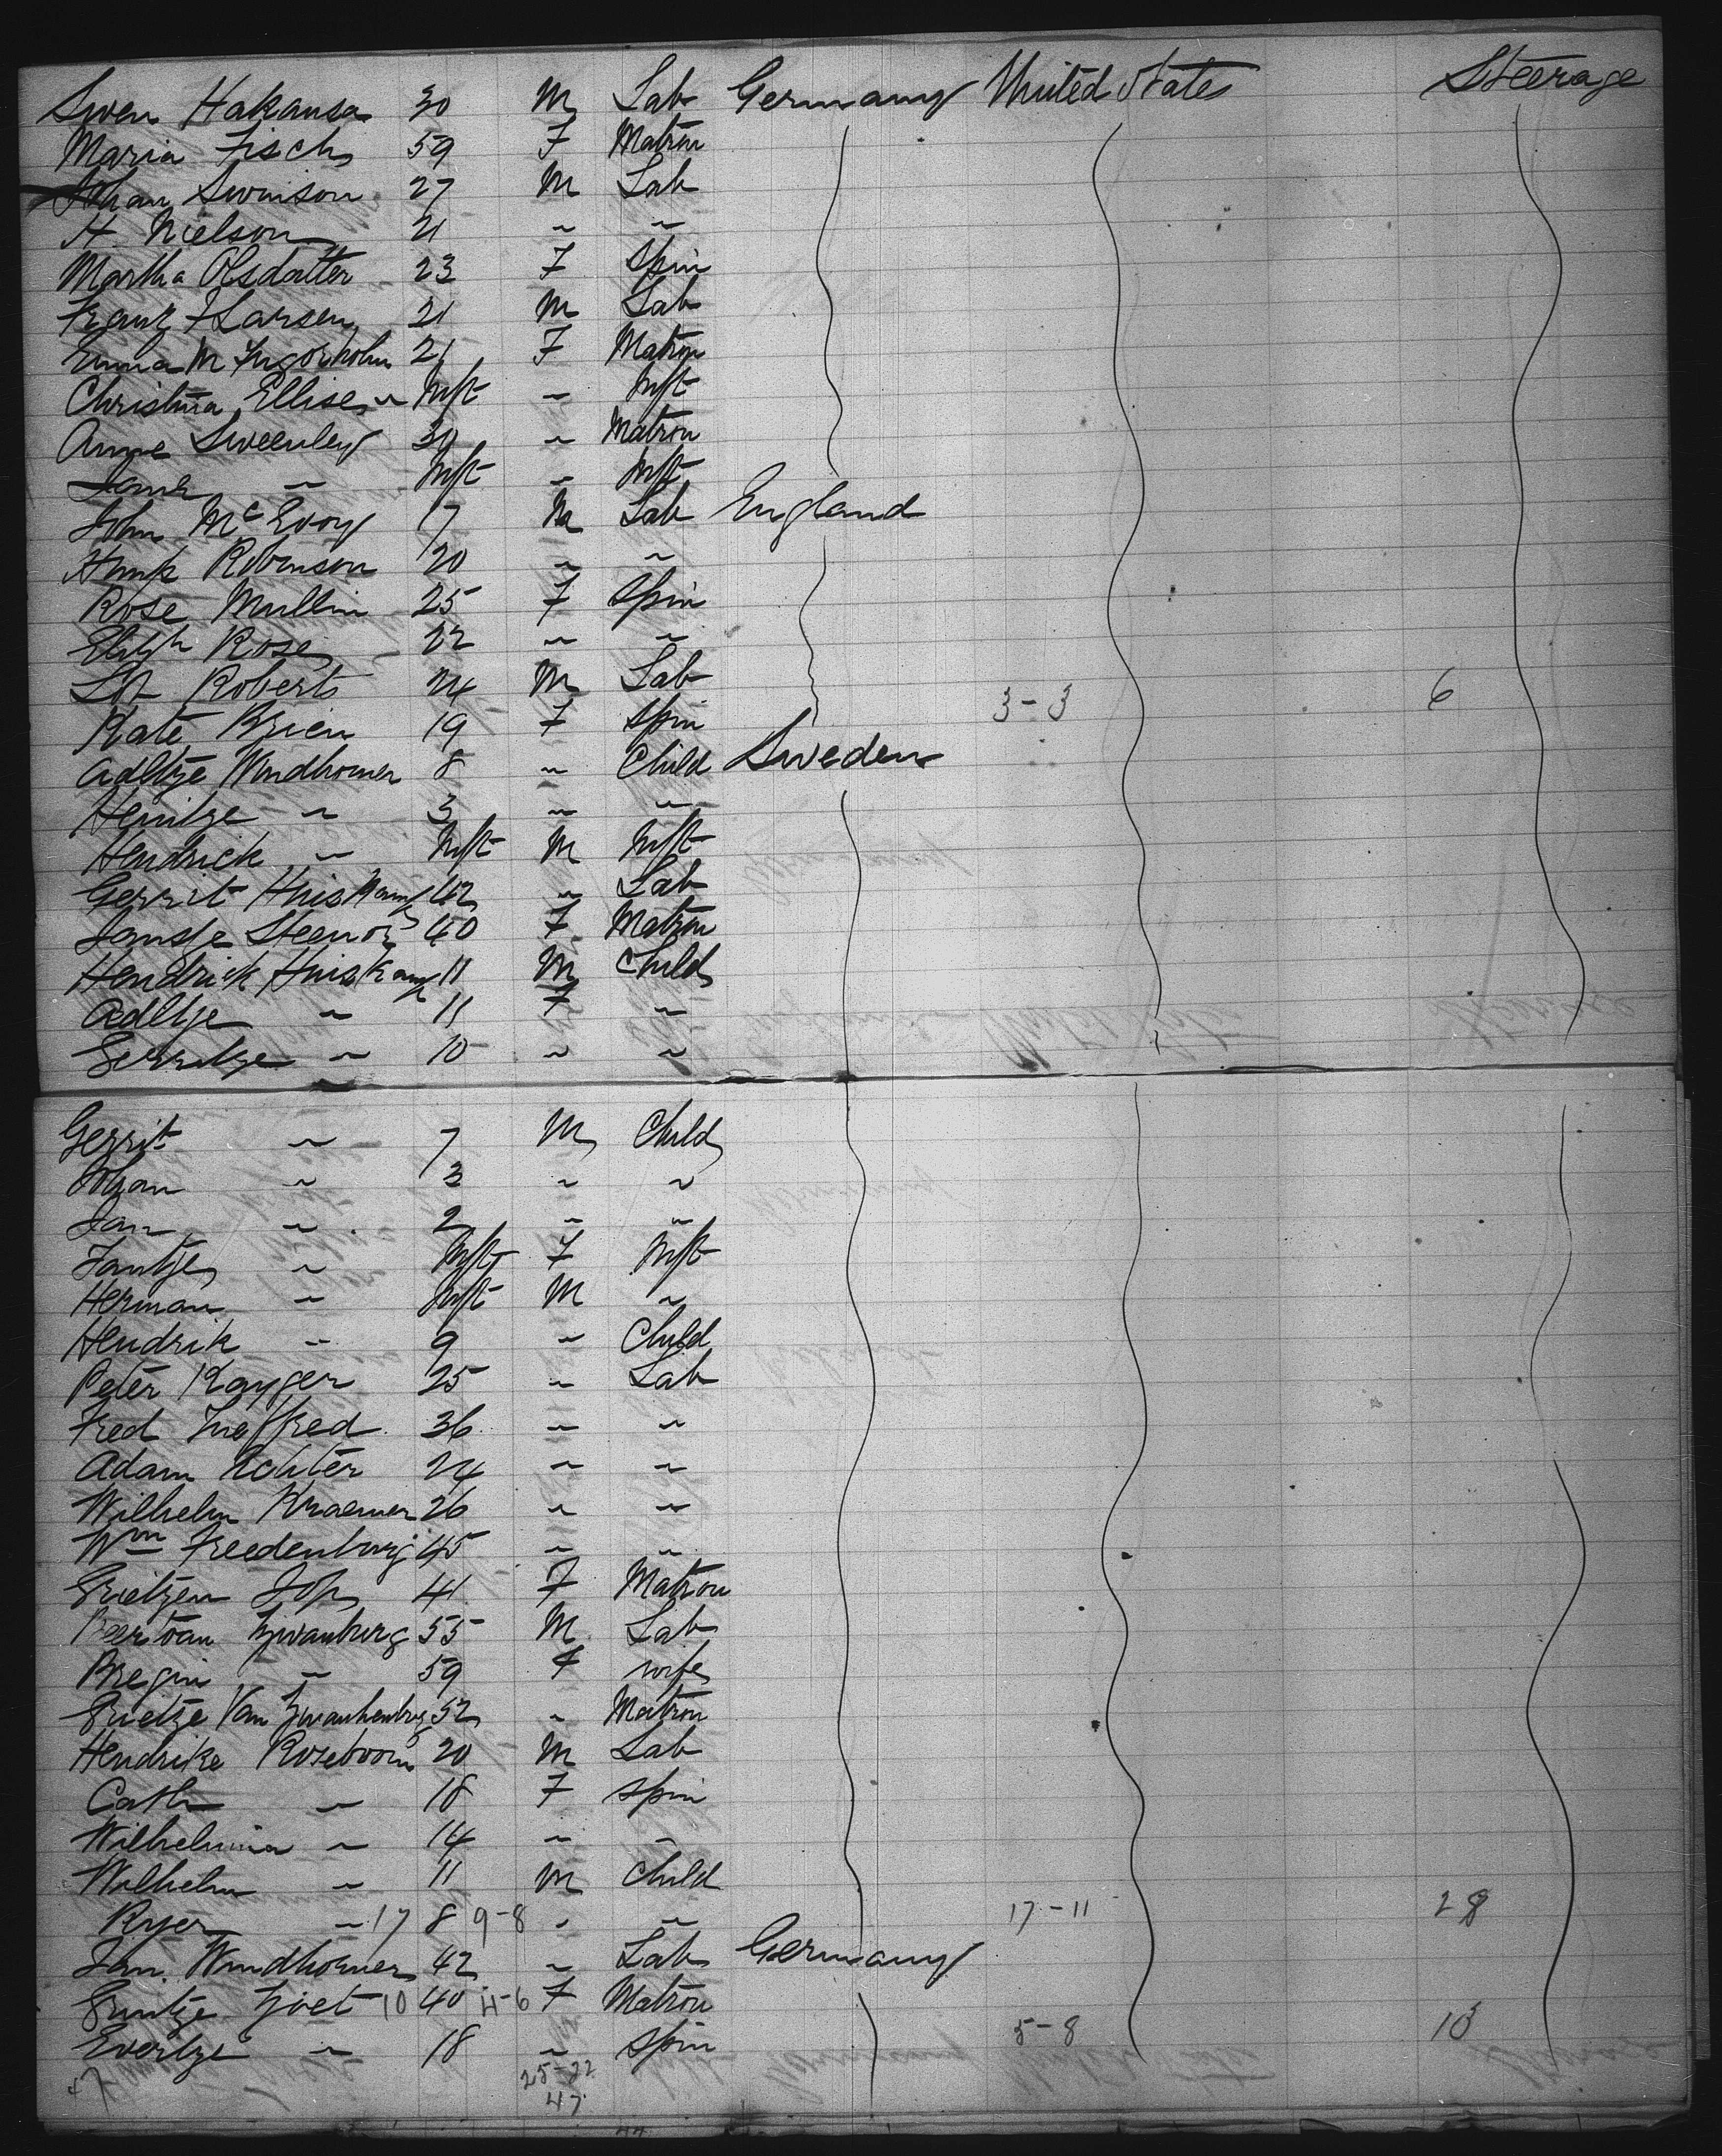 Swen Hakansa 30 M Lab Germany United States Steerage
Maria Fisch 59 F Matron
Johan Swinson 27 M Lab
H. Nielson 21 " "
Martha Olsdatter 23 F Spin
Franz Larsen 21 M Lab
Emma M Ingorholm 21 F Matron
Christina Ellisen Inft " Inft
Anne Sweenley 30 " Matron
" Inft " Inft
John McEvoy 17 M Lab England
Robinson 20 " "
Rose Mullin 25 F Spin
Elizth Rose 22 " "
Roberts 24 M Lab
3-3 6
Kate Brien 19 F Spin
Adeltje Windhouwer 8 " Child Sweden
Hentze " 3 " "
Hendrick " Inft M Inft
Gerrit Huiskamp 42 " Lab
Jansje Steenor 40 F Matron
Hendrick Huiskamp 11 M Child
Adeltje " 11 F "
Gerritze " 10 " "
Gerrit " 7 M Child
Johan " 3 " "
Jan " 2 " "
Jantje " Inft F Inft
Herman " Inft M "
Hendrik " 9 " Child
Peter Kayger 25 " Lab
Fred 36 " "
Adam Richter 24 " "
Wilhelm Kraemer 26 " "
Wm Freedenburg 45 " "
Grietzen 41 F Matron
Zwanburg 55 M Lab
Bregin " 59 F wife
Grietze Van Zwanhenburg 52 " Matron
Hendrike Roseboom 20 M Lab
Cath " 18 F Spin
Wilhelmina " 14 " "
Wilhelm " 11 M Child
Ryer " 17 8 9-8 " " 17-11 28
Jan Windhouwer 42 " Lab Germany
Zoet 10 40 4-6 F Matron
5-8 13
Evertze " 18 " Spin
47 25-22
47